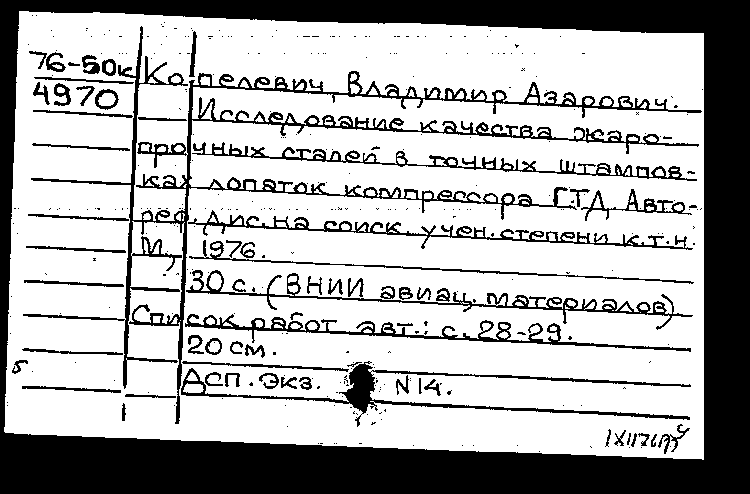 76-50к Копелевич, Владимир Азарович.
4970 Исследование качества жаро-
прочных сталей в точных штампов-
ках лопаток компрессора ГТД. Авто-
реф. дис. на соиск. учен. степени к.т.н.
М., 1976.
30 с. (ВНИИ авиац. материалов)
Список работ авт.: с. 28-29.
20 см.
Б
Дсп. Экз. N 14.